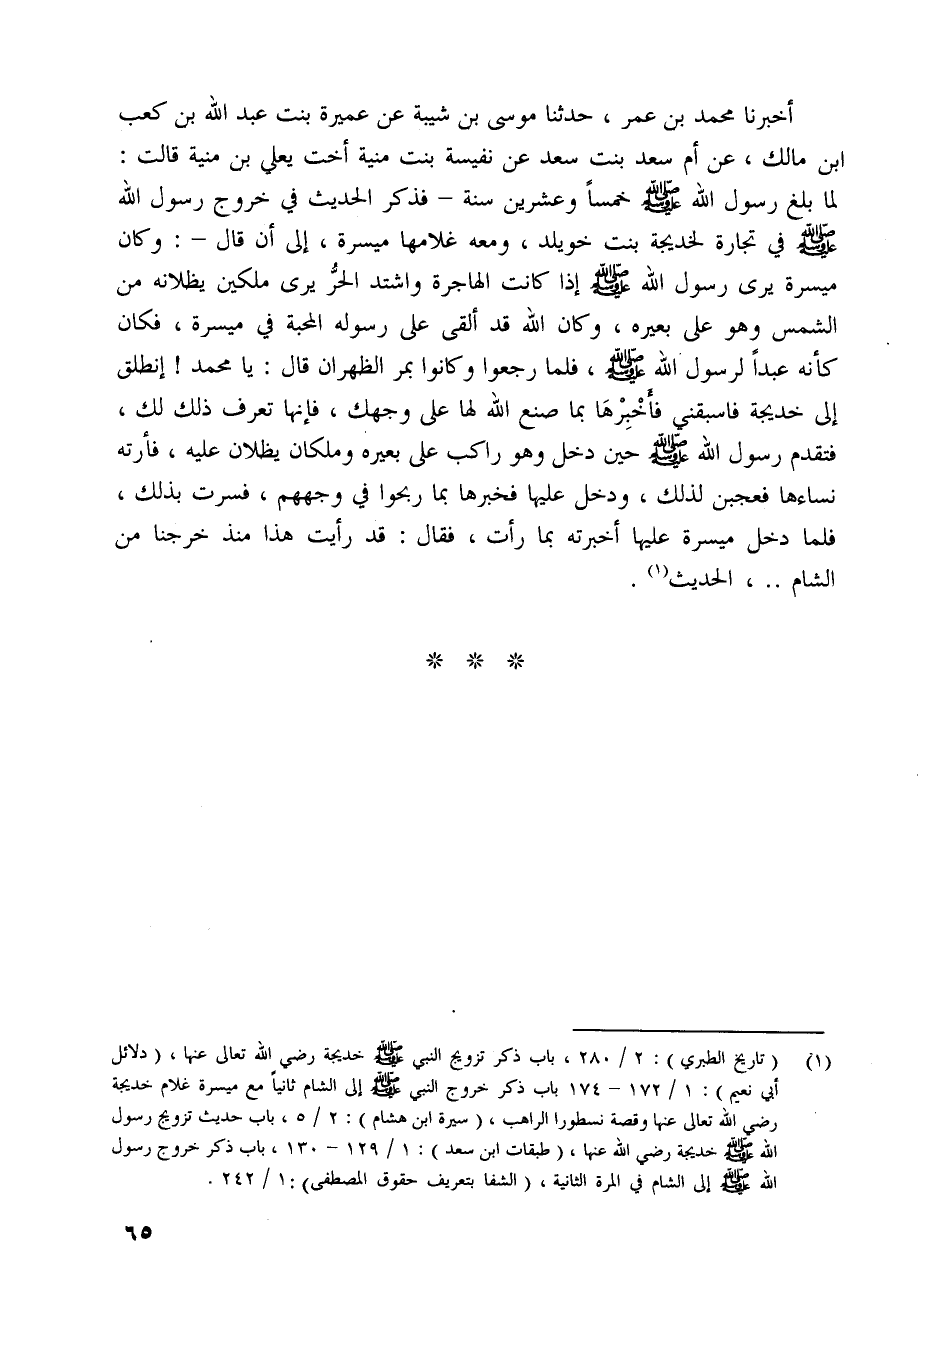 أخبرنا محمد بن عمر ، حدثنا موسى بن شيبة عن عميرة بنت عبد الله بن كعب
ابن مالك ، عن أم سعد بنت سعد عن نفيسة بنت منية أخت يعلي بن منية قالت :
لما بلغ رسول الله ﷺ خمساً وعشرين سنة – فذكر الحديث في خروج رسول الله
ﷺ في تجارة لخديجة بنت خويلد ، ومعه غلامها ميسرة ، إلى أن قال – : وكان
ميسرة يرى رسول الله ﷺ إذا كانت الهاجرة واشتد الحرُّ يرى ملكين يظلانه من
الشمس وهو على بعيره ، وكان الله قد ألقى على رسوله المحبة في ميسرة ، فكان
كأنه عبداً لرسول الله ﷺ ، فلما رجعوا وكانوا بمر الظهران قال : يا محمد ! إنطلق
إلى خديجة فاسبقني فأَخْبِرْهَا بما صنع الله لها على وجهك ، فإنها تعرف ذلك لك ،
فتقدم رسول الله ﷺ حين دخل وهو راكب على بعيره وملكان يظلان عليه ، فأرته
نساءها فعجبن لذلك ، ودخل عليها فخبرها بما ربحوا في وجههم ، فسرت بذلك ،
فلما دخل ميسرة عليها أخبرته بما رأت ، فقال : قد رأيت هذا منذ خرجنا من
الشام .. ، الحديث(١) .
※ ※ ※
(١) ( تاريخ الطبري ) : ٢ / ٢٨٠ ، باب ذكر تزويج النبي ﷺ خديجة رضي الله تعالى عنها ، ( دلائل
أبي نعيم ) : ١ / ١٧٢ – ١٧٤ باب ذكر خروج النبي ﷺ إلى الشام ثانياً مع ميسرة غلام خديجة
رضي الله تعالى عنها وقصة نسطورا الراهب ، ( سيرة ابن هشام ) : ٢ / ٥ ، باب حديث تزويج رسول
الله ﷺ خديجة رضي الله عنها ، ( طبقات ابن سعد ) : ١ / ١٢٩ – ١٣٠ ، باب ذكر خروج رسول
الله ﷺ إلى الشام في المرة الثانية ، ( الشفا بتعريف حقوق المصطفى) : ١ / ٢٤٢ .
٦٥